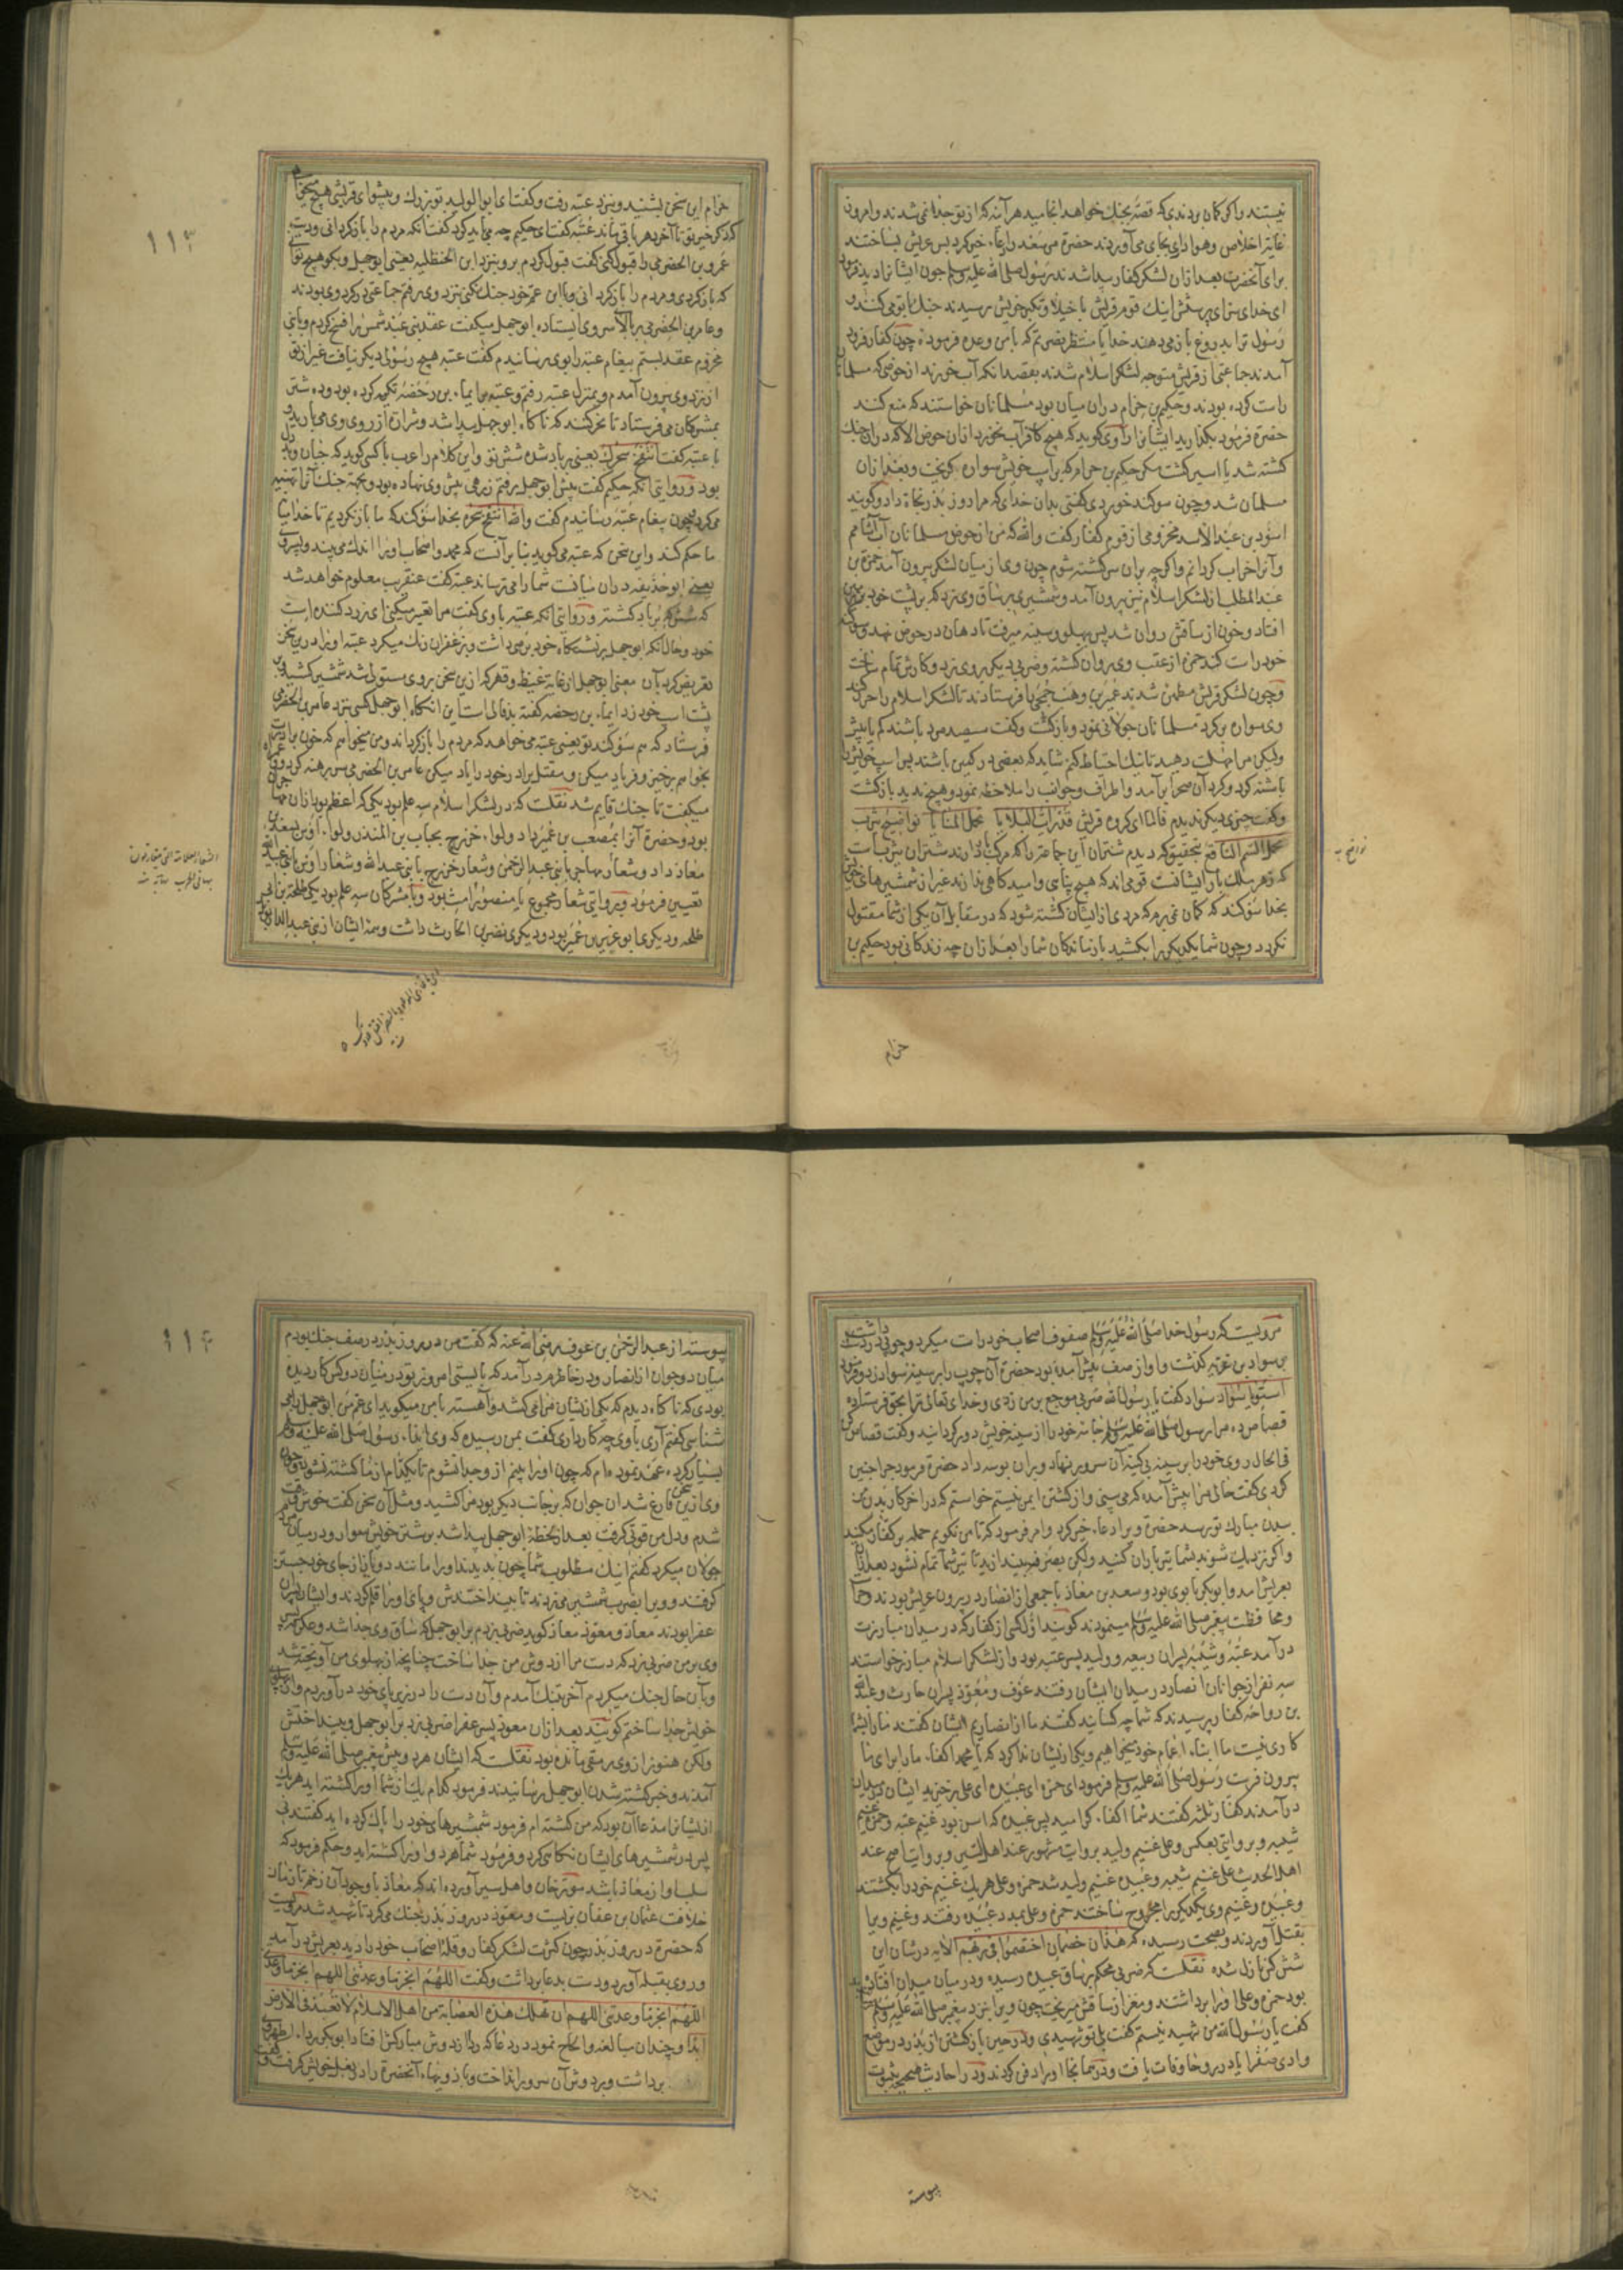 نیستند واکر کمان بردندی که قصّه بجنك خواهد انجامید هر آینه که از تو جدا نمی شدند وامروز
غایة اخلاص وهواداری بجای می آوردند حضرة مر سعد را دعاء خیر کرد پس عریش بساختند
برای آنحضرت بعد از ان لشکر کفار پیدا شدند رسول صلی الله علیه وسلم چون ایشانرا دید فرمود
ای خدای سزای پرستش اینك قوم قریش با خیلا وتکبر خویش رسیدند جنك با تو می کنند و
رسول ترا بدروغ باز می دهند خدایا منتظر نصرتم که با من وعده فرموده چون کفار فرود
آمدند جماعتی از قریش متوجه لشکر اسلام شدند بقصد انکه آب خورند از حوضی که مسلمانان
راست کرده بودند وحکیم بن حزام دران میان بود مسلمانان خواستند که منع کنند
حضرة فرمود بکذارید ایشانرا راوی کوید که هیچ کافر آب نخورد ازان حوض الا که دران جنك
کشته شد یا اسیر کشت مکر حکیم بن حزام که بر اسب خویش سواره بکریخت وبعد از ان
مسلمان شد وچون سوکند خوردی کفتی بدان خدای که مرا روز بدر نجاة داد وکویند
اسود بن عبد الاسد مخزومی از قوم کفار کفت والله که من از حوض مسلمانان آب آشامم
وآنرا خراب کردانم واکر چه بران سر کشته شوم چون وی از میان لشکر بیرون آمد حمزة بن
عبد المطلب از لشکر اسلام نیز بیرون آمد وشمشیری بر ساق وی بزد که بر پشت خود
افتاد وخون از ساقش روان شد پس بپهلو وسینه میرفت تا دهان در حوض نهد و سوکند
خود راست کند حمزه از عقب وی روان کشته وضربی دیکر بر وی بزد وکارش تمام ساخت
وچون لشکر قریش مطمئن شدند عمیر بن وهب جمحی را فرستادند تا لشکر اسلام را حزر کند
وی سواره برکرد مسلمانان جولانی نمود وبازکشت وکفت سیصد مرد باشند کم یا بیش
ولیکن مرا مهلت دهید تا نیك احتیاط کنم شاید که بعضی در کمین باشند پس اسب خویش را
وکفت چیزی دیکر ندیدم فاما ای کروه قریش قد رایت البلایا تحمل المنایا نواضح یثرب
تحمل السم الناقع بتحقیق که دیدم شتران این جماعة را که مرك بار دارند شتران یثرب است
که زهر مهلك بار ایشانست قومی اند که هیچ پناهی وامیدکاهی ندارند غیر از شمشیرهای خویش
بخدا سوکند که کمان نمی برم که مردی از ایشان کشته شود که در مقابل آن یکی از شما مقتول
نکردد وچون شما یکدیکر را بکشید بازماندکان شما را بعد از ان چه زندکانی بود حکیم بن
حزام
نواضح
حزام این سخن بشنید ونزد عتبه رفت وکفت ای ابو الولید تو بزرك وپیشوای قریشی هیچ میخواهی
که ذکر خیر تو تا آخر دهر باقی ماند عتبه کفت ای حکیم چه می باید کرد کفت آنکه مردم را بازکردانی ودیت
عمرو بن الحضرمی را قبول کنی کفت قبول کردم برو بنزد ابن الحنظلیه یعنی ابو جهل وبکو هیچ توانی
که بازکردی ومردم را بازکردانی وبا ابن عم خود جنك نکنی بنزد وی رفتم جماعتی کرد وی بودند
وعامر بن الحضرمی بر بالا سر وی ایستاده ابو جهل میکفت عقد بنی عبد شمس را فسخ کردم وبا بنی
مخزوم عقد بستم پیغام عتبه را بوی رسانیدم کفت عتبه هیچ رسولی دیکر نیافت غیر از تو
از نزد وی بیرون آمدم وبمنزل عتبه رفتم وعتبه بر ایماء بن رحضه تکیه کرده بود وده شتر
بمشرکان می فرستاد تا نحر کنند که ناکاه ابو جهل پیدا شد وشرارة از روی وی می بارید
با عتبه کفت انتفخ سحرك یعنی پر باد شده شش تو واین کلام را عرب با کسی کوید که جبان وبد دل
بود وروایتی انکه حکیم کفت پیش ابو جهل رفتم زرهی پیش وی نهاده بود وبجهة جنك آنرا تهیه
می کرد چون پیغام عتبه رسانیدم کفت والله انتفخ سحره بخدا سوکند که ما بازنکردیم تا خدا میان
ما حکم کند واین سخن که عتبه می کوید بنا بر آنست که محمد واصحاب اورا اندك می بیند وپسر وی
یعنی ابو حذیفه در ان میانست شما را می ترساند عتبه کفت عنقریب معلوم خواهد شد
که شش که پر باد کشته وروایتی انکه عتبه با وی کفت مرا تعییر میکنی ای زرد کننده است
خود وحال آنکه ابو جهل بر نشستکاه خود برصی داشت وبزعفران رنك میکرد عتبه اورا درین سخن
تعریض کرد بآن معنی ابو جهل از غایة غیظ وقهر که ازین سخن بر وی مستولی شد شمشیر کشید وبر
پشت اسب خود زد ایماء بن رحضه کفته بد فالی است این انکاه ابو جهل کسی بنزد عامر بن الحضرمی
فرستاد که هم سوکند تو یعنی عتبه می خواهد که مردم را بازکرداند ومن میخواهم که خون برادرت
بخواهم برخیز وفریاد میکن ومقتل برادر خود را یاد میکن عامر بن الحضرمی سر برهنه کرد و
میکفت تا جنك قایم شد نقلست که در لشکر اسلام سه علم بود یکی که اعظم بود ازان مهاجران
بود وحضرة آنرا بمصعب بن عمیر داد ولواء خزرج بحباب بن المنذر ولواء اوس بسعد بن
معاذ داد وشعار مهاجر یا بنی عبد الرحمن وشعار خزرج یا بنی عبد الله وشعار اوس یا بنی عبید الله
تعیین فرمود وبروایتی شعار مجموع یا منصور امت بود وبا مشرکان سه علم بود یکی طلحة بن ابی
طلحه ودیکری ابو عزیز بن عمیر بود ودیکری نضر بن الحارث داشت وهمه ایشان از بنی عبد الدار بودند
۱۱۳
مرویست که رسول خدا صلی الله علیه وسلم صفوف اصحاب خود راست میکرد وچوبی در دست داشت
بر سواد بن غزیه کذشت واو از صف پیش آمده بود حضرة آن چوب را بر سینه سواد زد وفرمود
استو یا سواد سواد کفت یا رسول الله ضربی موجع بر من زدی وخدای تعالی ترا بحق فرستاده
قصاص من ده مرا رسول صلی الله علیه وسلم جامه خود را از سینه خویش دور کردانید وکفت قصاص کن
فی الحال روی خود را بر سینه بی کینه آن سرور نهاد وبران بوسه داد حضرة فرمود چرا چنین
کردی کفت حالی مرا پیش آمده که می بینی واز کشتن ایمن نیستم خواستم که در آخر کار بدن من
ببدن مبارك تو رسد حضرة ویرا دعاء خیر کرد وامر فرمود که تا من نکویم حمله بر کفار مکنید
واکر نزدیك شوند بشما تیر باران کنید ولکن بصرفه بیندازید تا تیر شما تمام نشود بعد از آن
بعریش آمد وابو بکر با وی بود وسعد بن معاذ با جمعی از انصار در بیرون عریش بودند وحراست
ومحافظت پیغمبر صلی الله علیه وسلم مینمودند کویند اول کسی از کفار که در میدان مبارزت
در آمد عتبه وشیبه پسران ربیعه وولید پسر عتبه بود واز لشکر اسلام مبارز خواستند
سه نفر از جوانان انصار در میدان ایشان رفتند عوف ومعوذ پسران حارث وعبد الله
بن رواحه کفار پرسیدند که شما چه کسانید کفتند ما از انصاریم ایشان کفتند ما را بشما
کاری نیست ما ابناء اعمام خود میخواهیم ویکی از یشان ندا کرد که یا محمد اکفاء ما را برای ما
بیرون فرست رسول صلی الله علیه وسلم فرمود ای حمزه ای عبیده ای علی برخیزید ایشان بمیدان
در آمدند کفار ثلثه کفتند شما اکفاء کرامید پس عبیده که اسن بود غنیم عتبه وحمزه غنیم
شیبه وبروایتی بعکس وعلی غنیم ولید بروایت مشهور عند اهل السیر وبروایت اصح عند
اهل الحدیث علی غنیم شیبه وعبیده غنیم ولید شد حمزه وعلی هر یك غنیم خود را بکشتند
وعبیده وغنیم وی یکدیکر را مجروح ساختند حمزه وعلی بمدد عبیده رفتند وغنیم ویرا
بقتل آوردند وبصحت رسیده که هذان خصمان اختصموا فی ربهم الآیه در شان این
شش کس نازل شده نقلست که ضربی محکم بر ساق عبیده رسیده ودر میان میدان افتاده
بود حمزه وعلی اورا برداشتند ومغز از ساقش میریخت چون ویرا بنزد پیغمبر صلی الله علیه وسلم
کفت یا رسول الله من شهید نیستم کفت بلی تو شهیدی ودر حین بازکشتن از بدر در موضع
وادی صفرا یا در روحا وفات یافت ودر همانجا اورا دفن کردند ودر احادیث صحیحه بثبوت
پیوسته
پیوسته از عبد الرحمن بن عوف رضی الله عنه که کفت من در روز بدر در صف جنك بودم
میان دو جوان از انصار ودر خاطرم در آمد که بایستی امروز تو در میان دو کس کاردیده
بودی که ناکاه دیدم که یکی از یشان مرا می کشد وآهسته با من میکوید ای عم من ابو جهل را می
شناسی کفتم آری با وی چه کار داری کفت بمن رسیده که وی ایذاء رسول صلی الله علیه وسلم
بسیار کرده عهد نموده ام که چون اورا بینم از وی جدا نشوم تا کدام از ما کشته نشود وچون
وی ازین سخن فارغ شد آن جوان که بر جانب دیکر بود مرا کشید ومثل آن سخن کفت خوش وقت
شدم ودل من قوتی کرفت بعد از لحظه ابو جهل پیدا شد بر شتر خویش سوار ودر میان مردم
جولان میکرد کفتم اینك مطلوب شما چون بدیدند اورا مانند دو باز از جای خود جستن
کرفتند وویرا بضرب شمشیر می زدند تا بینداختندش وپای اورا قلم کردند وایشان پسران
عفرا بودند معاذ ومعوذ معاذ کوید ضربی زدم بر ابو جهل که ساق وی جدا شد وعکرمه پسر
وی بر من ضربی زد که دست مرا از دوش من جدا ساخت چنانچه از پهلوی من آویخته شد
وبآن حال جنك میکردم آخر بتنك آمدم وآن دست را در زیر پای خود در آوردم واز پهلوی
خویش جدا ساختم کویند بعد ازان معوذ پسر عفرا ضربی بزد بر ابو جهل وبینداختش
ولکن هنوز از وی رمقی مانده بود نقلست که ایشان هر دو پیش پیغمبر صلی الله علیه وسلم
آمدند وخبر کشته شدن ابو جهل رسانیدند فرمود کدام یك از شما اورا کشته اید هر یك
از یشانرا مدعا آن بود که من کشته ام فرمود شمشیرهای خود را پاك کرده اید کفتند نی
پس در شمشیرهای ایشان نکاهی کرد وفرمود شما هر دو اورا کشته اید وحکم فرمود که
سلب او از معاذ باشد مورخان واهل سیر آورده اند که معاذ با وجود آن زخم تا زمان
خلافت عثمان بن عفان بزیست ومعوذ در روز بدر جنك می کرد تا شهید شد مرویست
که حضرة در روز بدر چون کثرت لشکر کفار وقلة اصحاب خود را دید بعریش در آمد
وروی بقبله آورد ودست بدعا برداشت وکفت اللهم انجز ما وعدتنی اللهم انجز ما وعدتنی
اللهم انجز ما وعدتنی اللهم ان تهلك هذه العصابة من اهل الاسلام لا تعبد فی الارض
ابدا وچندان مبالغه والحاح نمود در دعا که ردا از دوش مبارکش افتاد ابو بکر رداء اطهر وی
برداشت وبر دوش آن سرور انداخت وبازوی آنحضرة را در بغل خویش کرفت وکفت
۱۱۴